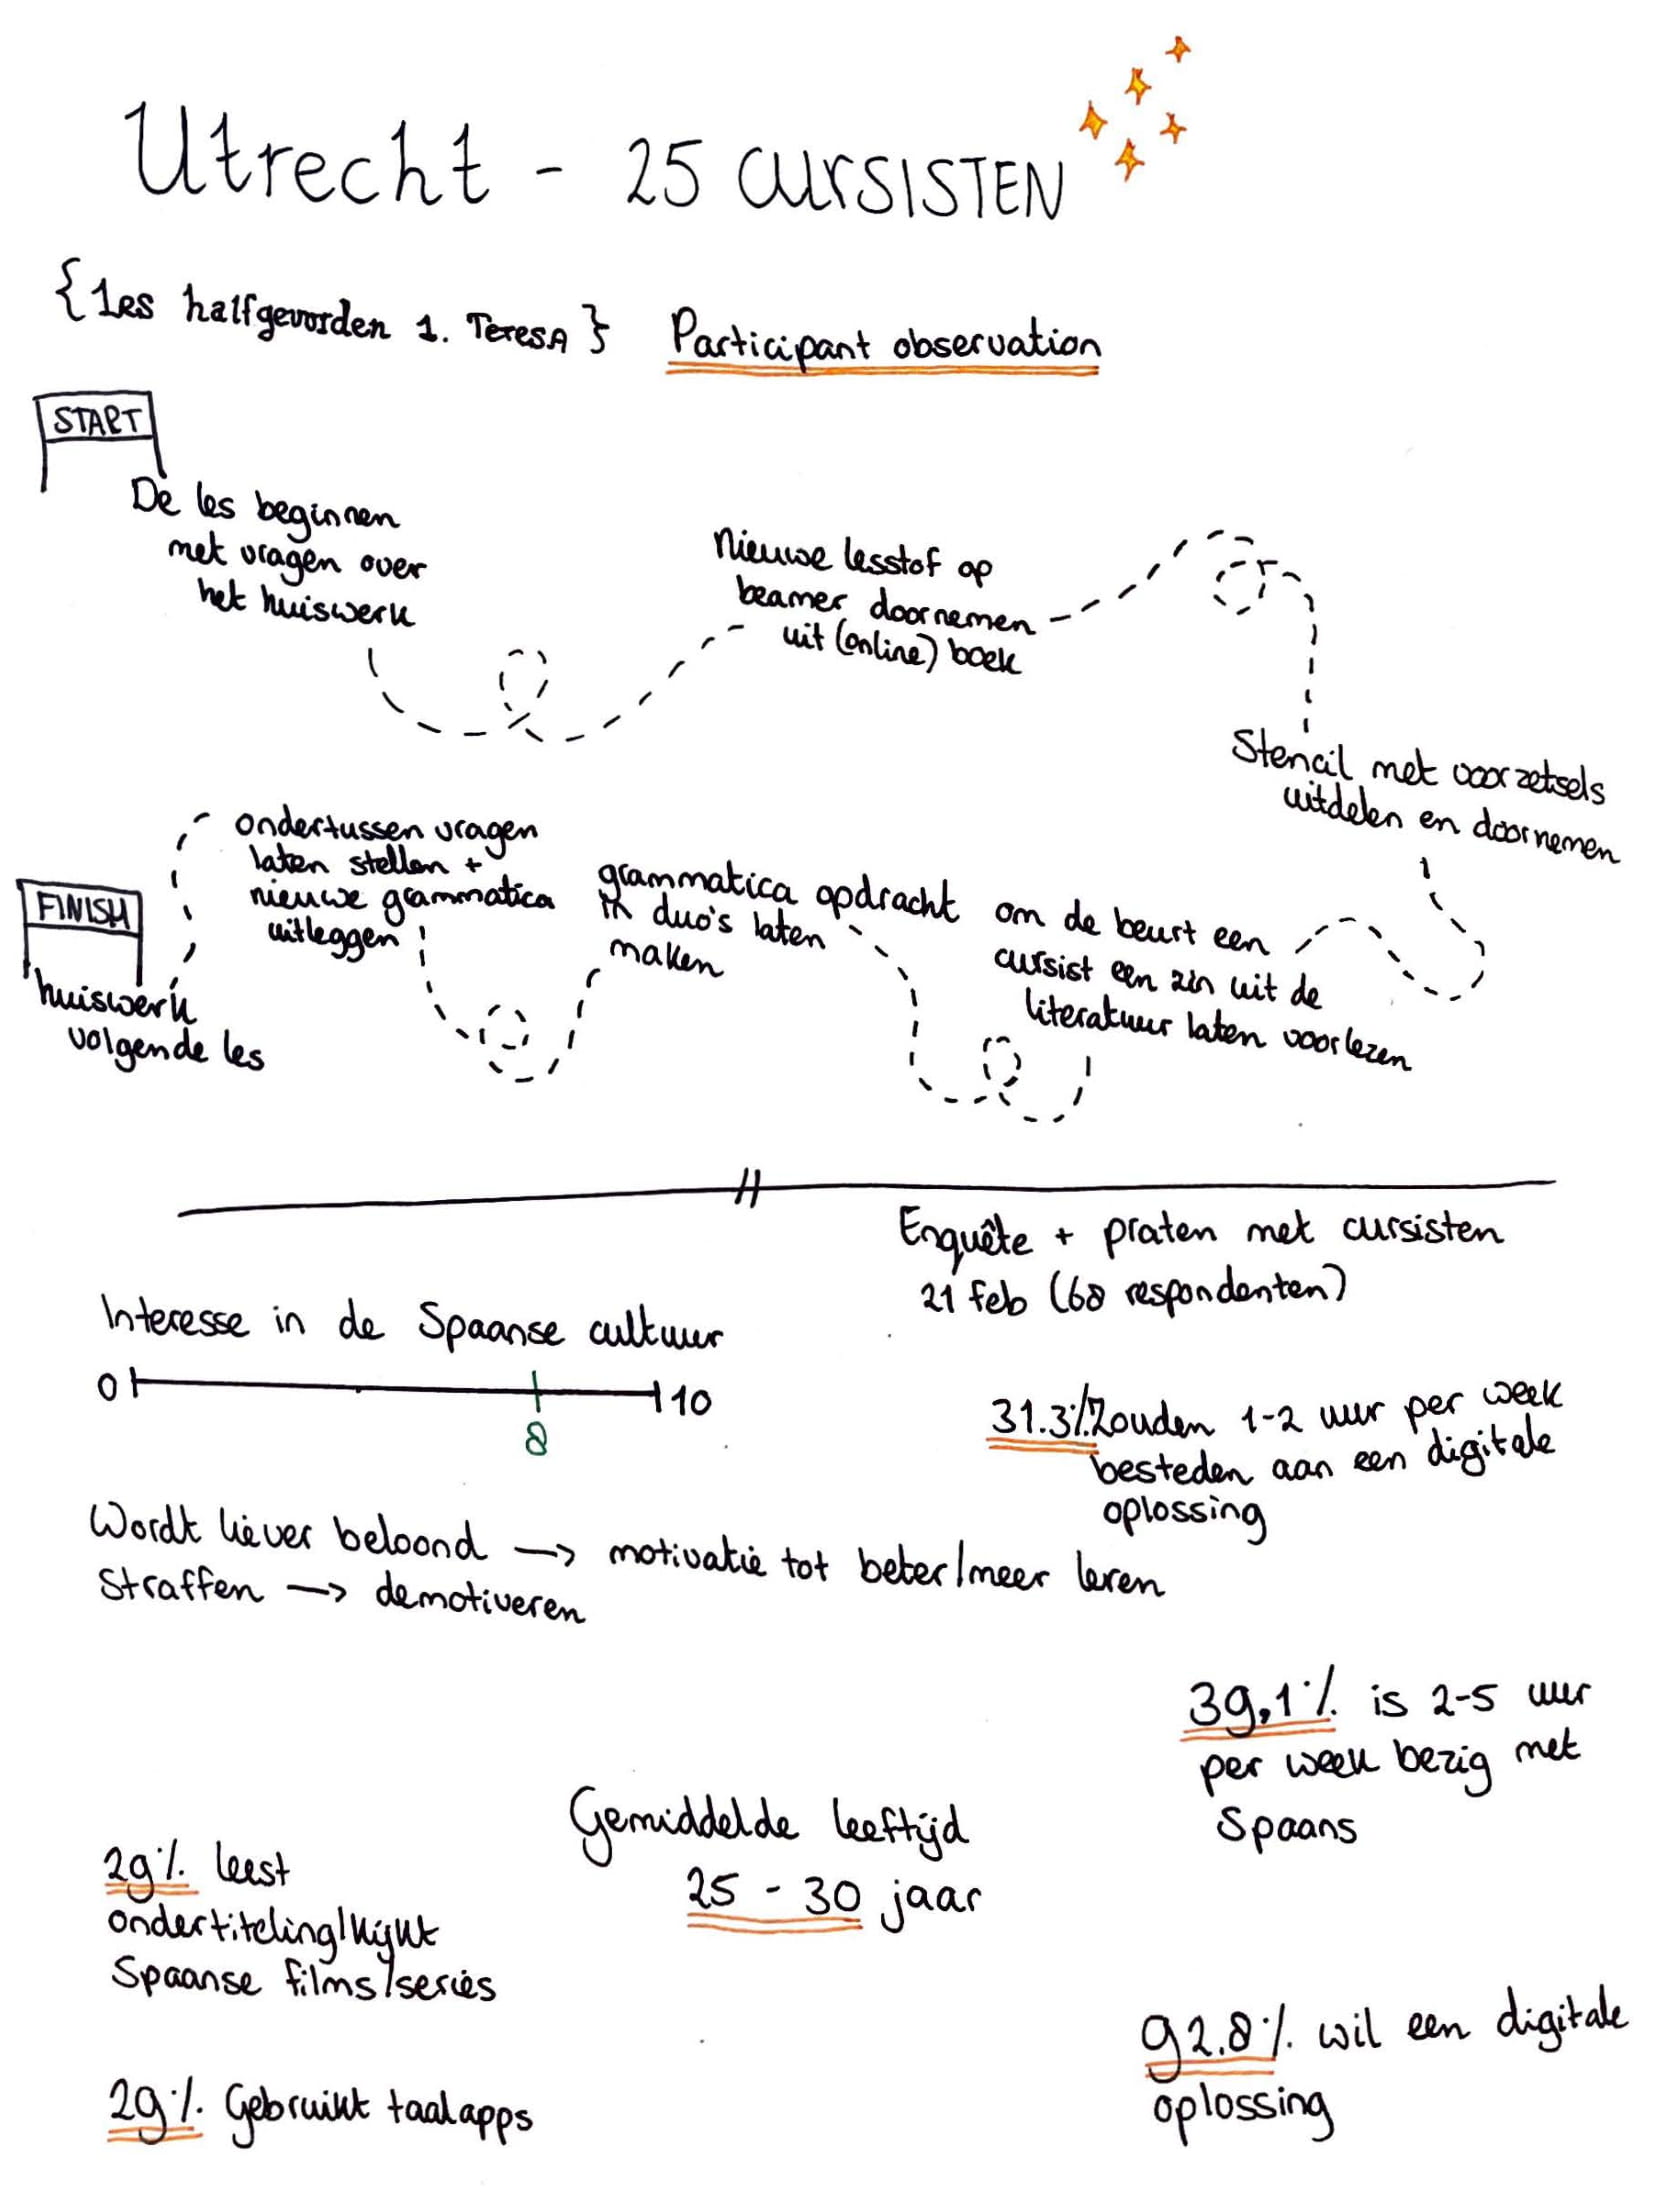 Utrecht - 25 CURSISTEN
{Les halfgevorden 1. Teresa} Participant observation
START
De les beginnen
met vragen over
het huiswerk
Nieuwe lesstof op
beamer doornemen
uit (online) boek
Stencil met voorzetsels
uitdelen en doornemen
om de beurt een
cursist een zin uit de
literatuur laten voorlezen
grammatica opdracht
in duo's laten
maken
ondertussen vragen
laten stellen +
nieuwe grammatica
uitleggen
FINISH
huiswerk
volgende les
Enquête + praten met cursisten
21 feb (68 respondenten)
Interesse in de Spaanse cultuur
0 10
8
31.3% zouden 1-2 uur per week
besteden aan een digitale
oplossing
Wordt liever beloond → motivatie tot beter/meer leren
Straffen → demotiveren
39,1% is 2-5 uur
per week bezig met
Spaans
Gemiddelde leeftijd
25 - 30 jaar
29% leest
ondertiteling/kijkt
Spaanse films/series
92.8% wil een digitale
oplossing
29% Gebruikt taalapps